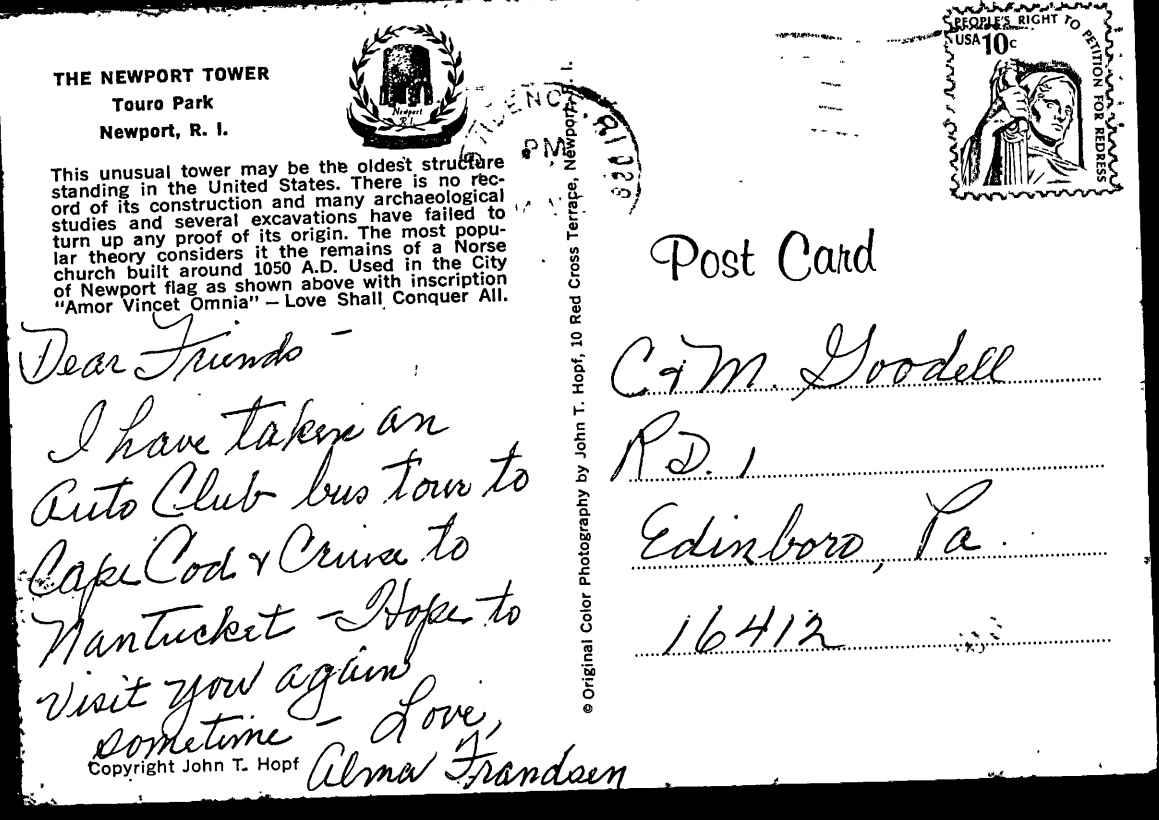 THE NEWPORT TOWER
Touro Park
Newport, R. I.
Newport
R.I.
This unusual tower may be the oldest structure
standing in the United States. There is no rec-
ord of its construction and many archaeological
studies and several excavations have failed to
turn up any proof of its origin. The most popu-
lar theory considers it the remains of a Norse
church built around 1050 A.D. Used in the City
of Newport flag as shown above with inscription
"Amor Vincet Omnia" — Love Shall Conquer All.
Dear Friends -
I have taken an
Auto Club bus tour to
Cape Cod & Cruise to
Nantucket - Hope to
visit you again
sometime - Love,
Alma Frandsen
Copyright John T. Hopf
© Original Color Photography by John T. Hopf, 10 Red Cross Terrace, Newport, R. I.
PM
RI 028
PEOPLE'S RIGHT TO PETITION FOR REDRESS
USA 10c
Post Card
C & M. Goodell
R.D. 1
Edinboro, Pa.
16412